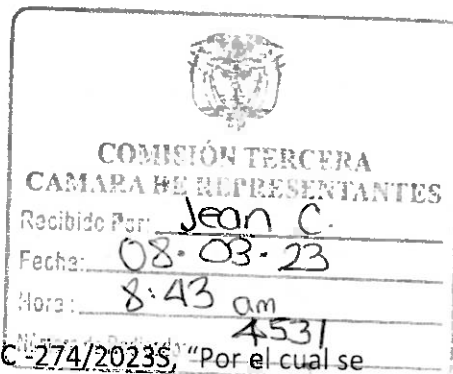 COMISIÓN TERCERA
CAMARA DE REPRESENTANTES
Recibido Por: Jean C.
Fecha: 08-03-23
Hora: 8:43 am
4531
C -274/2023S, “Por el cual se